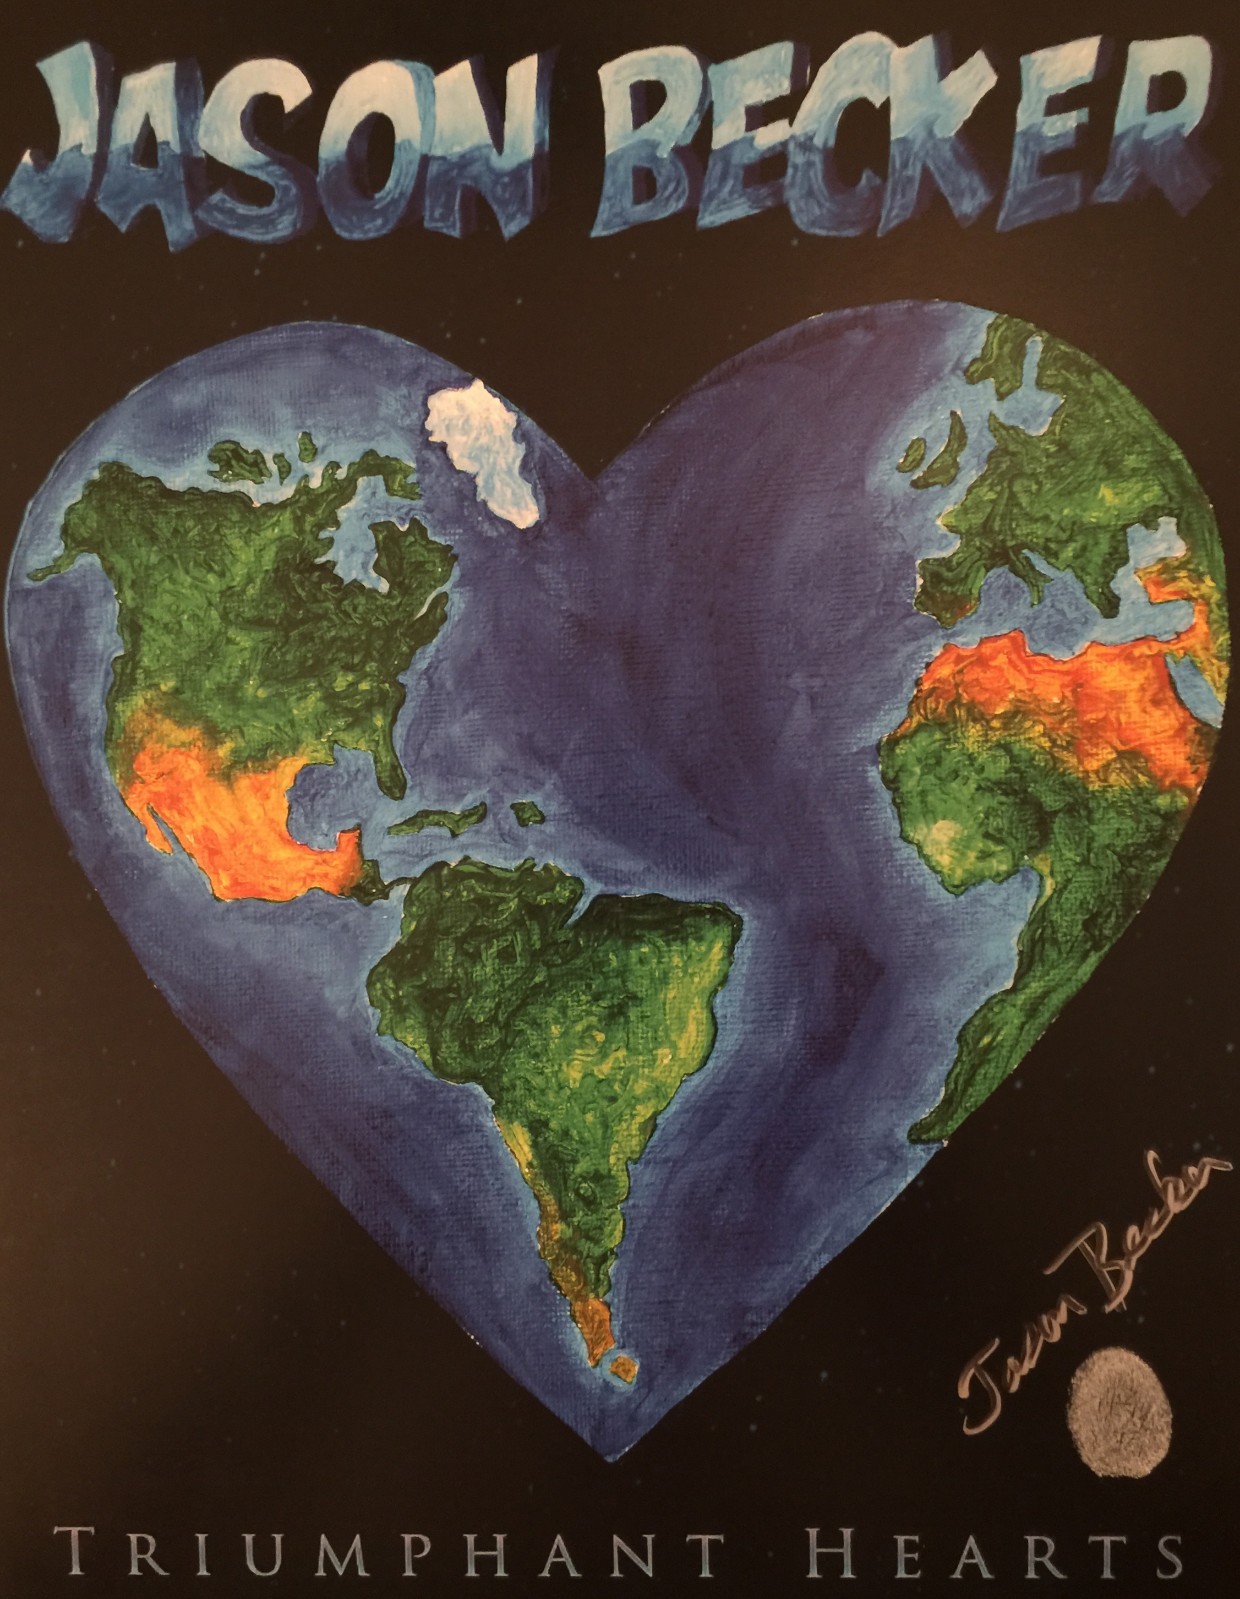 JASON BECKER
Jason Becker
TRIUMPHANT HEARTS